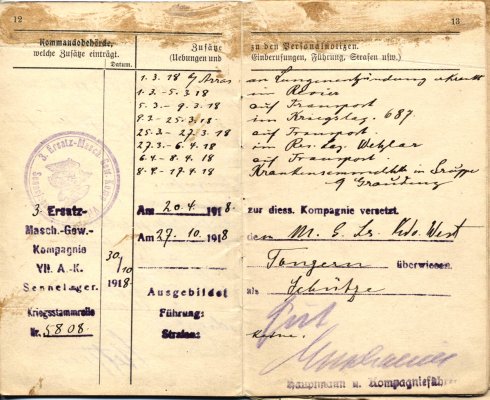 12
13
Kommandobehörde,
welche Zusätze einträgt.
Datum.
Zusätze
(Uebungen und
zu den Personalnotizen.
Einberufungen, Führung, Strafen usw.)
1. 3. 18 Arras
an Lungenentzündung erkrankt
1. 3. - 5. 3. 18
im Revier
5. 3. - 9. 3. 18
auf Transport
9. 3. - 25. 3. 18
im Kriegslaz. 687.
25. 3. - 27. 3. 18
auf Transport.
27. 3. - 6. 4. 18
im Res. laz. Wetzlar
6. 4. - 8. 4. 18
auf Transport.
8. 4. - 17. 4. 18
3. Ersatz-
Masch.-Gew.-
Kompagnie
VII. A.-K.
Sennelager.
Kriegsstammrolle
Nr. 5808.
30/10
1918
Am 20. 4. 1918
zur diess. Kompagnie versetzt.
Am 27. 10. 1918
dem M. G. Kdo. West
Tongern überwiesen
Ausgebildet
als Schütze
Führung:
Gut
Strafen:
Keine.
Hauptmann u. Kompagnieführer